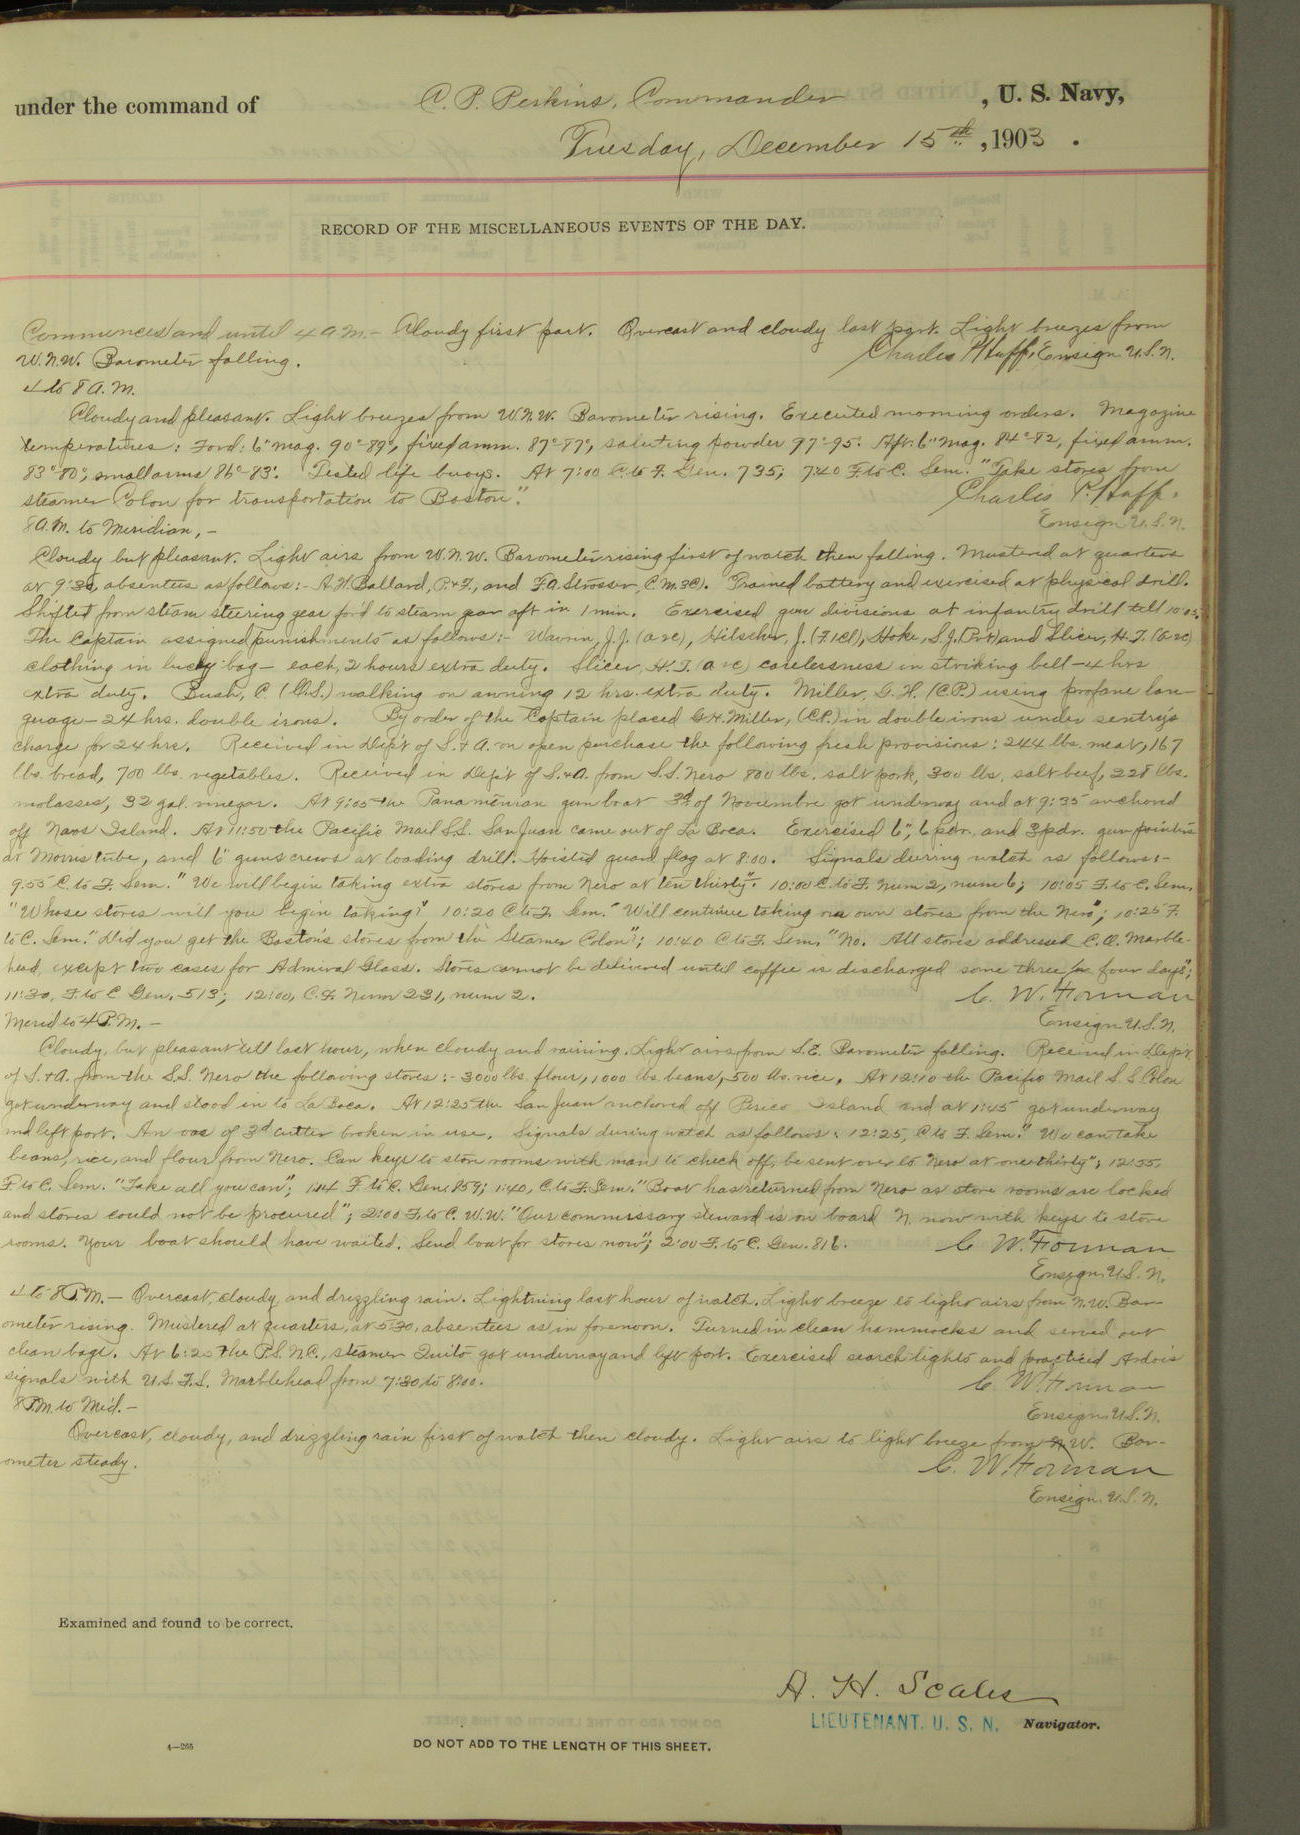 under the command of C. P. Perkins, Commander , U. S. Navy,
Tuesday, December 15th , 1903 .
RECORD OF THE MISCELLANEOUS EVENTS OF THE DAY.
Commences and until 4 A.M.- Cloudy first part. Overcast and cloudy last part. Light breezes from
W.N.W. Barometer falling. Charles P. Huff, Ensign U.S.N.
4 to 8 A.M.
Cloudy and pleasant. Light breezes from W.N.W. Barometer rising. Executed morning orders. Magazine
temperatures: Ford. 6" mag. 90°-89°, fixed amm. 87°-87°, saluting powder 97°-95°. Aft. 6" mag. 84°-82, fixed amm.
83°-80°, small arms 86°-83°. Tested life buoys. At 7:00 C. to F. Gen. 735; 7:40 F. to C. Sem. "Take stores from
steamer Colon for transportation to Boston". Charles P. Huff.
8 A.M. to Meridian,- Ensign U.S.N.
Cloudy but pleasant. Light airs from W.N.W. Barometer rising first of watch then falling. Mustered at quarters
at 9:30, absentees as follows:- A.W. Ballard, (P.&F., and F.A. Strosser, C.M.3C). Trained battery and exercised at physical drill.
Shifted from steam steering gear for'd to steam gear aft in 1 min. Exercised gun divisions at infantry drill till 10:05.
The Captain assigned punishments as follows:- Warren, J.J. (O.S.), Hilscher, J. (F.1Cl), Hoke, S.J. (Pvt) and Slicer, H.T. (O.S.)
clothing in lucky bag- each, 2 hours extra duty. Slicer, H.T. carelessness in striking bell-4 hrs
extra duty. Bush, C walking on awning 12 hrs. extra duty. Miller, G.H. (C.P.) using profane lan-
guage-24 hrs. double irons. By order of the Captain placed G.H. Miller, (C.P.) in double irons under sentry's
charge for 24 hrs. Received in Dep't of S. & A. on open purchase the following fresh provisions: 244 lbs. meat, 167
lbs. bread, 700 lbs. vegetables. Received in Dep't of S. & A. from S.S. Nero 800 lbs. salt pork, 300 lbs. salt beef, 228 lbs.
molasses, 32 gal. vinegar. At 9:05 the Panamenian gunboat 3d of Noviembre got underway and at 9:35 anchored
off Naos Island. At 11:50 the Pacific Mail S.S. San Juan came out of La Boca. Exercised 6", 6 pdr. and 3 pdr. gun pointers
at Morris tube, and 6" guns crews at loading drill. Hoisted guard flag at 8:00. Signals during watch as follows:-
9:55 C. to F. Sem. "We will begin taking extra stores from Nero at ten thirty". 10:00 C. to F. Num 2, num 6; 10:05 F. to C. Sem.
"Whose stores will you begin taking?" 10:20 C to F. Sem. "Will continue taking our own stores from the Nero"; 10:25 F.
to C. Sem. "Did you get the Boston's stores from the Steamer Colon"; 10:40 C to F. Sem. "No. All stores addressed C.O. Marble-
head, except two cases for Admiral Glass. Stores cannot be delivered until coffee is discharged some three or four days";
11:30, F. to C Gen. 513; 12:00, C.F. Num 231, num 2. C. W. Forman
Merid to 4 P.M.- Ensign U.S.N.
Cloudy, but pleasant till last hour, when cloudy and raining. Light airs from S.E. Barometer falling. Received in Dep't
of S. & A. from the S.S. Nero the following stores:- 3000 lbs flour, 1000 lbs beans, 500 lbs. rice. At 12:10 the Pacific Mail S.S. Colon
got underway and stood in to La Boca. At 12:25 the San Juan anchored off Perico Island and at 1:45 got underway
and left port. An oar of 3d cutter broken in use. Signals during watch as follows: 12:25, C to F. Sem. "We can take
beans, rice, and flour from Nero. Can keys to store rooms with man to check off, be sent over to Nero at one thirty"; 12:55,
F to C. Sem. "Take all you can"; 1:14 F. to C. Gen. 859; 1:40, C. to F. Sem. "Boat has returned from Nero as store rooms are locked
and stores could not be procured"; 2:00 F. to C. W.W. "Our commissary steward is on board N. now with keys to store
rooms. Your boat should have waited. Send boat for stores now"; 2:00 F. to C. Gen. 816. C. W. Forman
Ensign U.S.N.
4 to 8 P.M.- Overcast, cloudy and drizzling rain. Lightning last hour of watch. Light breeze to light airs from N.W. Bar-
ometer rising. Mustered at quarters, at 5:30, absentees as in forenoon. Turned in clean hammocks and served out
clean bags. At 6:25 the P.S.N.C., steamer Quito got underway and left port. Exercised searchlights and practiced Ardois
signals with U.S.F.S. Marblehead from 7:30 to 8:00. C. W. Forman
8 P.M. to Mid.- Ensign U.S.N.
Overcast, cloudy, and drizzling rain first of watch then cloudy. Light airs to light breeze from N.W. Bar-
ometer steady. C. W. Forman
Ensign U.S.N.
Examined and found to be correct.
A. H. Scales
LIEUTENANT, U. S. N. Navigator.
4—265 DO NOT ADD TO THE LENGTH OF THIS SHEET.